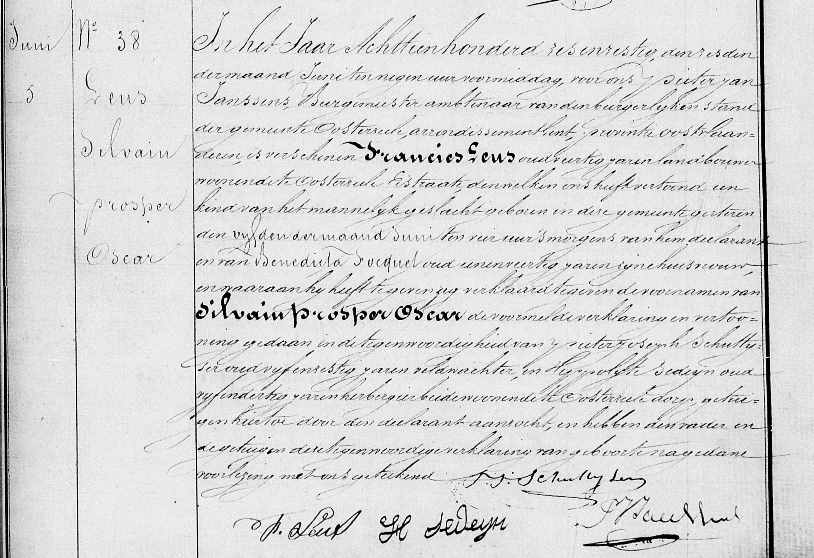 Juni
5
No 38
Leus
Silvain
prosper
Oscar
In het Jaar Achttienhonderd zesenzestig, den zesden
der maand Juni ten negen uur voormiddag, voor ons pieter jan
Janssens, Burgemeester ambtenaar van den burgerlyken stand
der gemeente Oosterzele, arrondissement Gent, provintie oostvlaan-
deren is verschenen Francies Leus oud veertig jaren landbouwer
woonende te Oosterzele Eistraat, denwelken ons heeft vertoond een
kind van het mannelyk geslacht geboren in deze gemeente gisteren
den vyfden der maand Juni ten vier uur 's morgens van hem declarant
en van Benedicta Focquet oud eenenveertig jaren zyne huisvrouw,
en waaraan hy heeft te geven zeg verklaard te geven de voornamen van
Silvain prosper Oscar de voormelde verklaring en vertoo-
ning gedaan in de tegenwoordigheid van pieter Joseph Schutty-
ser oud vyfenzestig jaren veldwachter, en Hyppolyte Sedeyn oud
vyfendertig jaren herbergier beide woonende te Oosterzele dorp, getui-
gen hiertoe door den declarant aanzocht, en hebben den vader en
de getuigen deze tegenwoordige verklaring van geboorte na gedane
voorlezing met ons geteekend
f. Leus H Sedeyn